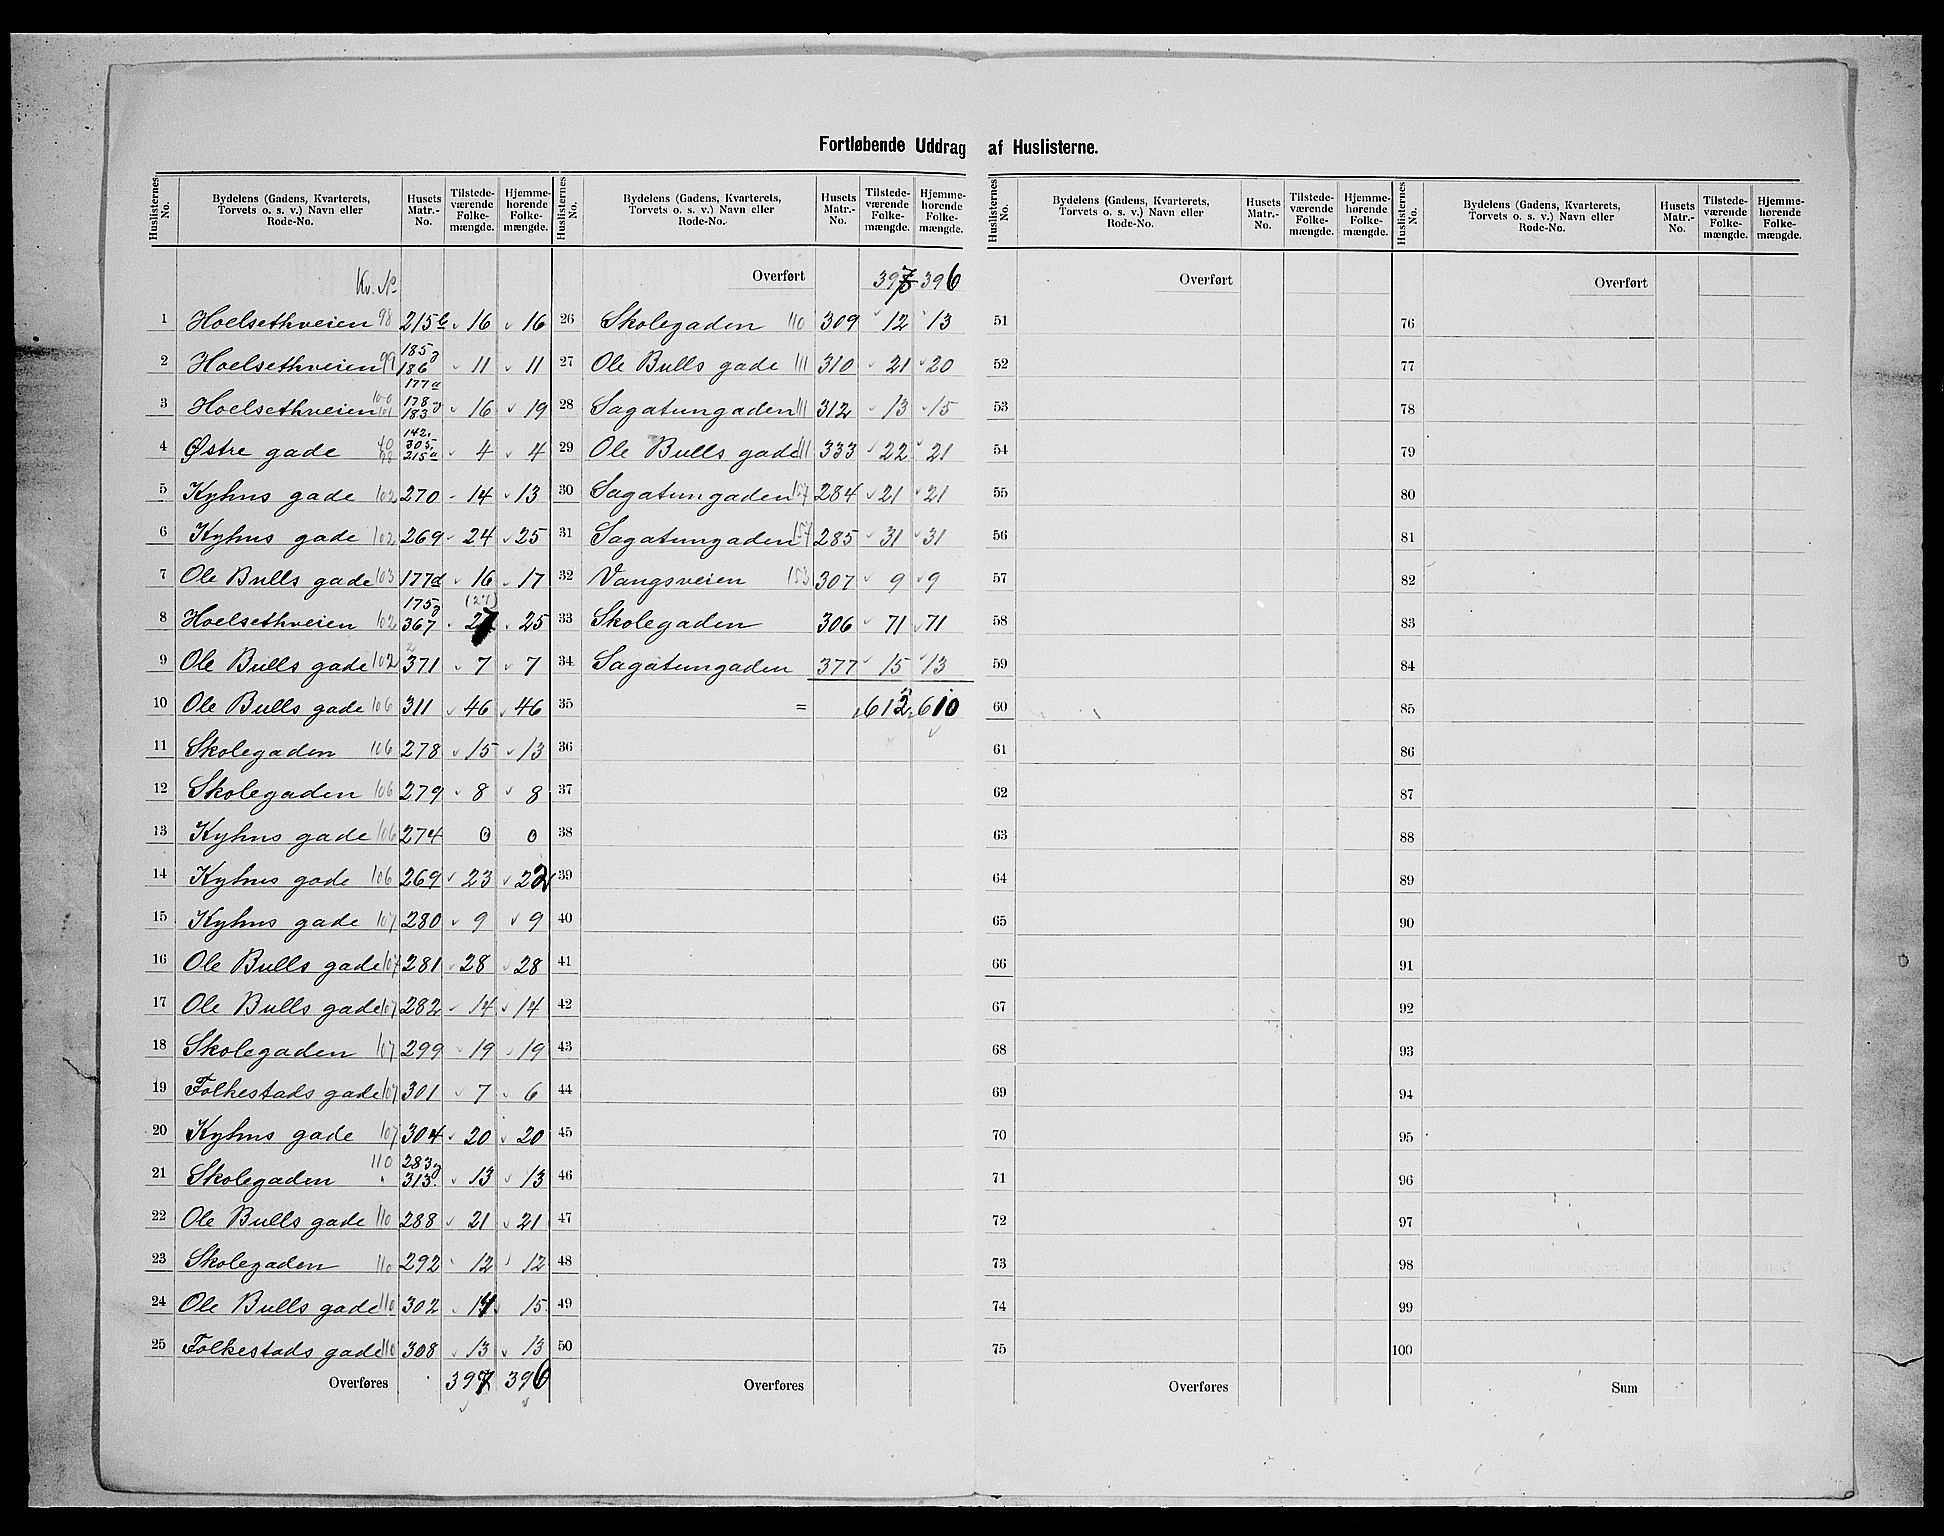 Fortløbende Uddrag af Huslisterne.
Huslisternes No. | Bydelens (Gadens, Kvarterets, Torvets o. s. v.) Navn eller Rode-No. | Husets Matr.-No. | Tilstede-værende Folke-mængde. | Hjemme-hørende Folke-mængde.
Kv. No
1 Hoelsethveien 98 215b 16 16
2 Hoelsethveien 99 185 186 11 11
3 Hoelsethveien 100 101 177a 178 183 16 19
4 Østre gade 40 98 142. 305. 215a 4 4
5 Kyhns gade 102 270 14 13
6 Kyhns gade 102 269 24 25
7 Ole Bulls gade 103 177d 16 17
8 Hoelsethveien 102 175 367 (27) 27 25
9 Ole Bulls gade 102 371 7 7
10 Ole Bulls gade 106 311 46 46
11 Skolegaden 106 278 15 13
12 Skolegaden 106 279 8 8
13 Kyhns gade 106 274 0 0
14 Kyhns gade 106 269 23 22
15 Kyhns gade 107 280 9 9
16 Ole Bulls gade 107 281 28 28
17 Ole Bulls gade 107 282 14 14
18 Skolegaden 107 299 19 19
19 Folkestads gade 107 301 7 6
20 Kyhns gade 107 304 20 20
21 Skolegaden 110 283 313. 13 13
22 Ole Bulls gade 110 288 21 21
23 Skolegaden 110 292 12 12
24 Ole Bulls gade 110 302 14 15
25 Folkestads gade 110 308 13 13
Overføres 397 396
Huslisternes No. | Bydelens (Gadens, Kvarterets, Torvets o. s. v.) Navn eller Rode-No. | Husets Matr.-No. | Tilstede-værende Folke-mængde. | Hjemme-hørende Folke-mængde.
Overført 397 396
26 Skolegaden 110 309 12 13
27 Ole Bulls gade 111 310 21 20
28 Sagatungaden 111 312 13 15
29 Ole Bulls gade 111 333 22 21
30 Sagatungaden 157 284 21 21
31 Sagatungaden 157 285 31 31
32 Vangsveien 153 307 9 9
33 Skolegaden 306 71 71
34 Sagatungaden 377 15 13
35 = 612 610
36
37
38
39
40
41
42
43
44
45
46
47
48
49
50
Overføres
Huslisternes No. | Bydelens (Gadens, Kvarterets, Torvets o. s. v.) Navn eller Rode-No. | Husets Matr.-No. | Tilstede-værende Folke-mængde. | Hjemme-hørende Folke-mængde.
Overført
51
52
53
54
55
56
57
58
59
60
61
62
63
64
65
66
67
68
69
70
71
72
73
74
75
Overføres
Huslisternes No. | Bydelens (Gadens, Kvarterets, Torvets o. s. v.) Navn eller Rode-No. | Husets Matr.-No. | Tilstede-værende Folke-mængde. | Hjemme-hørende Folke-mængde.
Overført
76
77
78
79
80
81
82
83
84
85
86
87
88
89
90
91
92
93
94
95
96
97
98
99
100
Sum